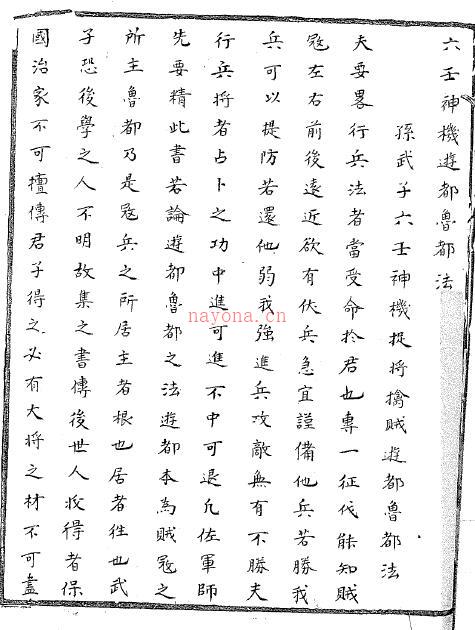 六壬神機遊都魯都法
孫武子六壬神機捉將擒賊遊都魯都法
夫要畧行兵法者當受命於君也專一征伐能知賊
宼左右前後遠近欲有伏兵急宜謹備他兵若勝我
兵可以提防若還他弱我強進兵攻敵無有不勝夫
行兵將者占卜之功中進可進不中可退凡佐軍師
先要精此書若論遊都魯都之法遊都本為賊宼之
所主魯都乃是宼兵之所居主者根也居者徃也武
子恐後學之人不明故集之書傳後世人收得者保
國治家不可擅傳君子得之必有大將之材不可盡
nayona.cn